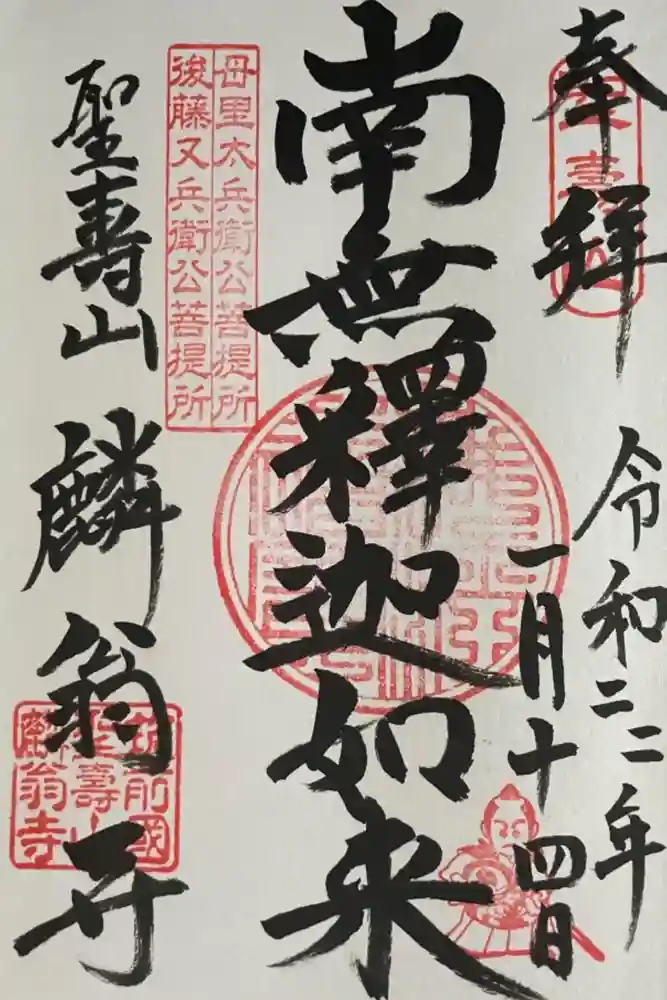 奉拝
聖壽山
令和二二年
一月十四日
南無釋迦如来
母里太兵衛公菩提所
後藤又兵衛公菩提所
聖壽山 麟翁寺
筑前國
聖壽山
麟翁寺